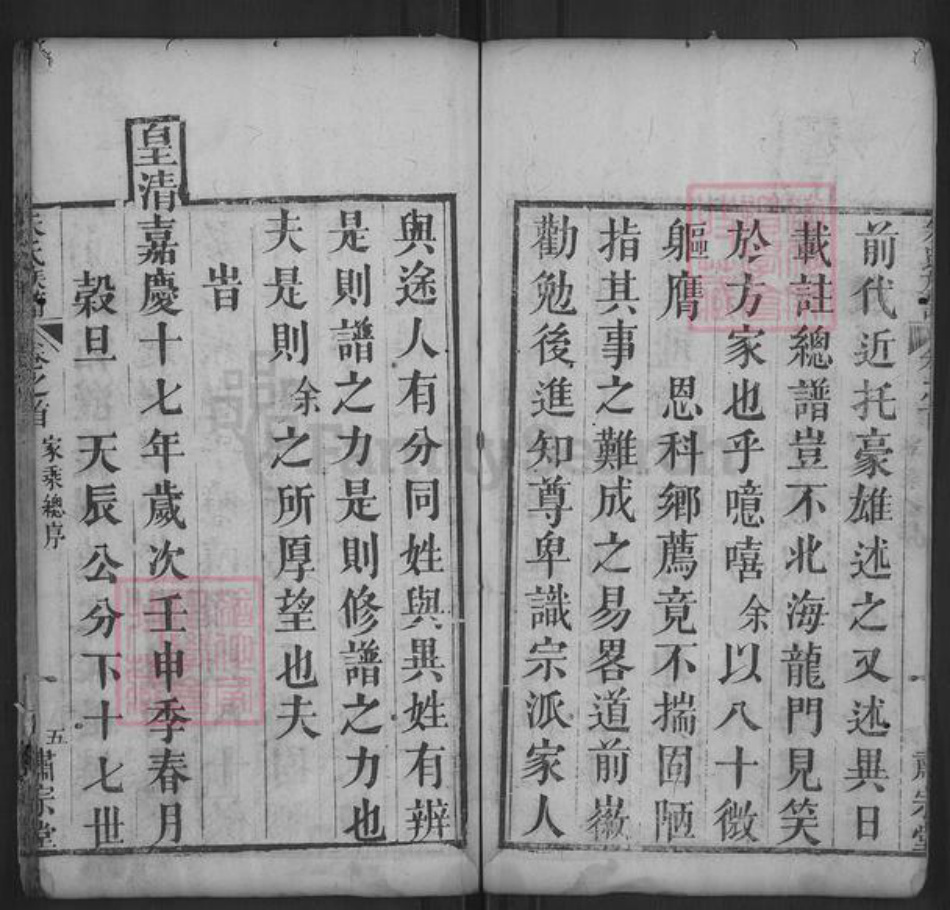 前代近托豪雄述之又述異日
載註總譜豈不北海龍門見笑
於方家也乎噫嘻余以八十微
軀膺 恩科鄉薦竟不揣固陋
指其事之難成之易畧道前徽
勸勉後進知尊卑識宗派家人
與途人有分同姓與異姓有辨
是則譜之力是則修譜之力也
夫是則余之所厚望也夫
旹
皇清嘉慶十七年歲次壬申季春月
穀旦 天辰公分下十七世
家乘總序
五 肅宗堂